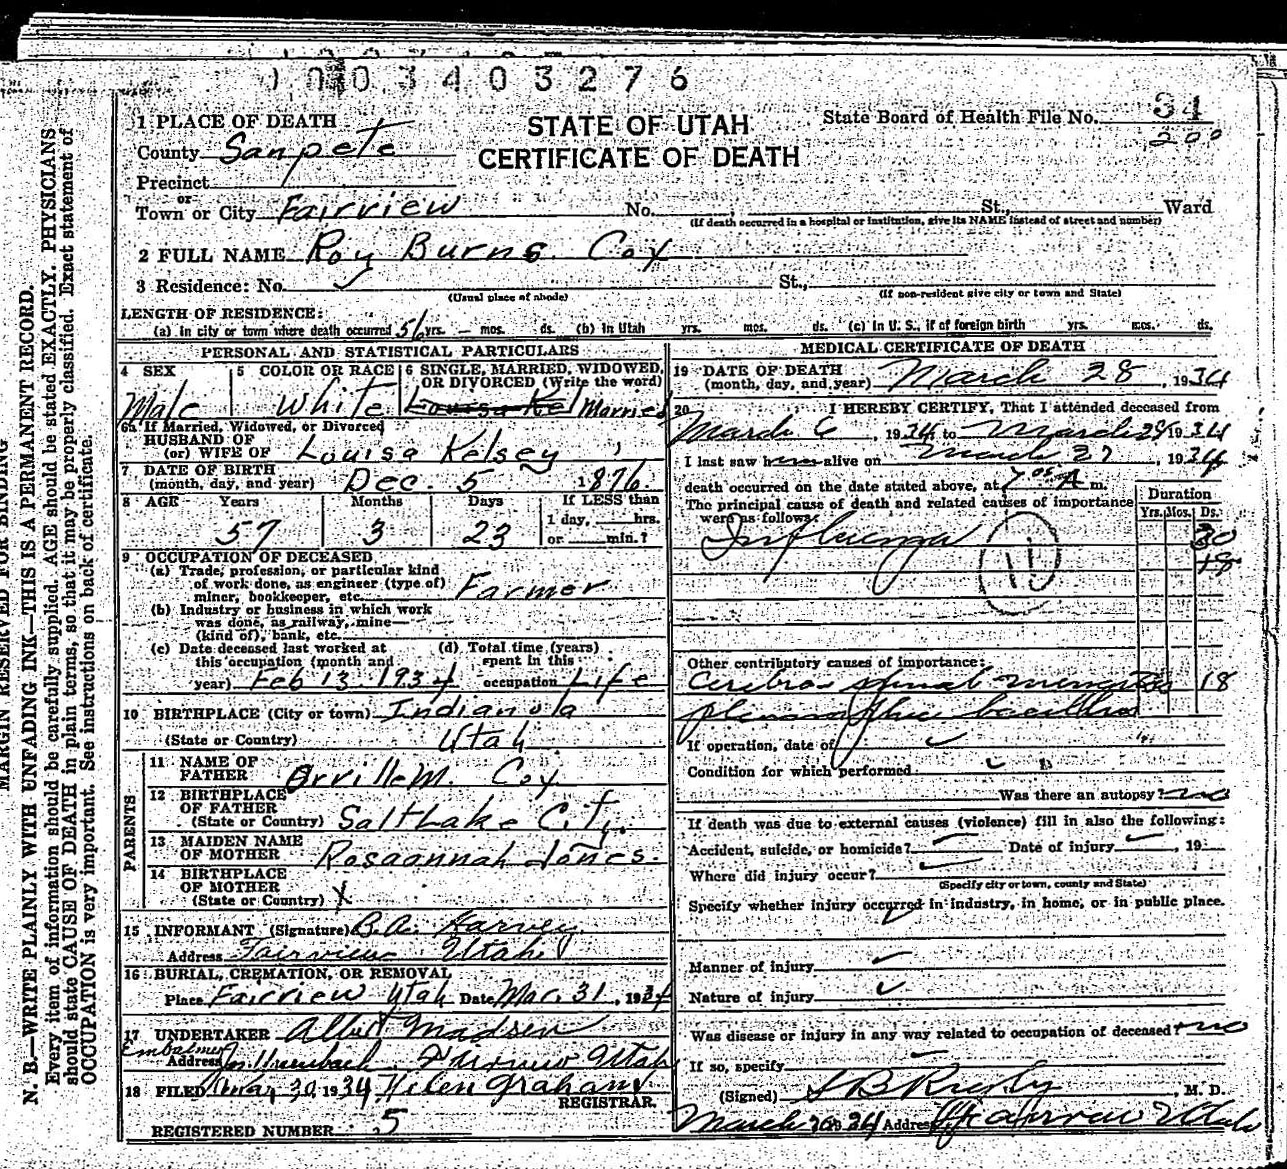 0 0 0 3 4 0 3 2 7 6
STATE OF UTAH
CERTIFICATE OF DEATH
State Board of Health File No. 34
200
1 PLACE OF DEATH
County Sanpete
Precinct
or
Town or City Fairview No. St., Ward
(If death occurred in a hospital or institution, give its NAME instead of street and number)
2 FULL NAME Roy Burns Cox
3 Residence: No. St.,
(Usual place of abode) (If non-resident give city or town and State)
LENGTH OF RESIDENCE:
(a) in city or town where death occurred 56 yrs. – mos. ds. (b) in Utah yrs. mos. ds. (c) in U. S., if of foreign birth yrs. mos. ds.
PERSONAL AND STATISTICAL PARTICULARS
4 SEX
Male
5 COLOR OR RACE
White
6 SINGLE, MARRIED, WIDOWED, OR DIVORCED (Write the word)
Louisa Kel Married
6a If Married, Widowed, or Divorced
HUSBAND OF
(or) WIFE OF Louisa Kelsey
7 DATE OF BIRTH
(month, day, and year) Dec. 5 1876.
8 AGE Years Months Days If LESS than
57 3 23 1 day, hrs.
or min.?
9 OCCUPATION OF DECEASED
(a) Trade, profession, or particular kind
of work done, as engineer (type of)
miner, bookkeeper, etc. Farmer
(b) Industry or business in which work
was done, as railway, mine
(kind of), bank, etc.
(c) Date deceased last worked at
this occupation (month and
year) Feb 13 1934
(d) Total time (years)
spent in this
occupation Life
10 BIRTHPLACE (City or town) Indianola
(State or Country) Utah
PARENTS
11 NAME OF
FATHER Orville M. Cox
12 BIRTHPLACE
OF FATHER
(State or Country) Salt Lake City.
13 MAIDEN NAME
OF MOTHER Rosaannah Jones.
14 BIRTHPLACE
OF MOTHER
(State or Country) X
15 INFORMANT (Signature) B.A. Harvey
Address Fairview Utah
16 BURIAL, CREMATION, OR REMOVAL
Place Fairview Utah Date Mar. 31, 1934
17 UNDERTAKER Albert Madsen
Embalmer
Address Utah
18 FILED Mar 30, 1934 Helen Graham
REGISTRAR.
REGISTERED NUMBER 5
MEDICAL CERTIFICATE OF DEATH
19 DATE OF DEATH
(month, day, and year) March 28, 1934
20 I HEREBY CERTIFY, That I attended deceased from
March 6, 1934 to March 28, 1934
I last saw him alive on March 27, 1934
death occurred on the date stated above, at 7 05 A m.
The principal cause of death and related causes of importance
were as follows:
Duration
Yrs. Mos. Ds.
Influenza 30
11
18
Other contributory causes of importance:
Cerebro spinal 18
If operation, date of
Condition for which performed
Was there an autopsy? no
If death was due to external causes (violence) fill in also the following:
Accident, suicide, or homicide? Date of injury , 19
Where did injury occur?
(Specify city or town, county and State)
Specify whether injury occurred in industry, in home, or in public place.
Manner of injury
Nature of injury
Was disease or injury in any way related to occupation of deceased? no
If so, specify
(Signed) , M. D.
March 1934 Address Fairview Utah
MARGIN RESERVED FOR BINDING
N. B.—WRITE PLAINLY WITH UNFADING INK—THIS IS A PERMANENT RECORD.
Every item of information should be carefully supplied. AGE should be stated EXACTLY. PHYSICIANS
should state CAUSE OF DEATH in plain terms, so that it may be properly classified. Exact statement of
OCCUPATION is very important. See instructions on back of certificate.